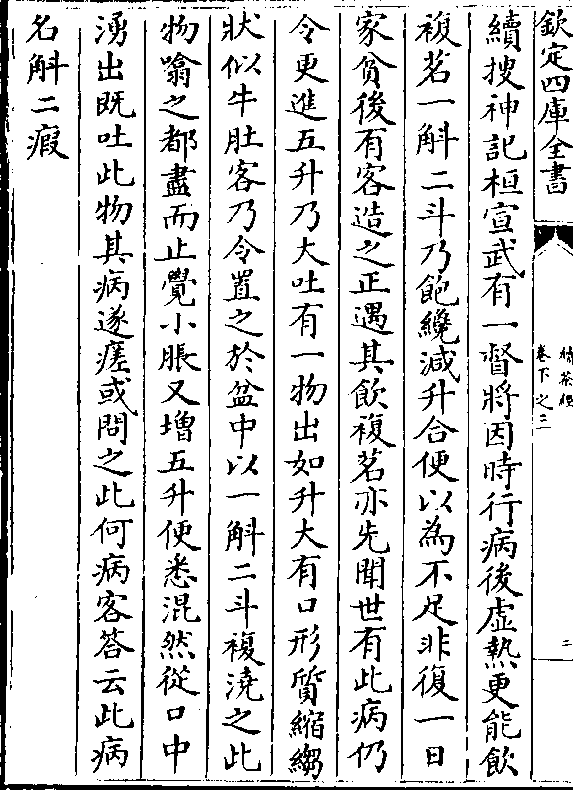 欽定四庫全書
續茶經
卷下之三
二
續搜神記桓宣武有一督將因時行病後虛熱更能飲
複茗一斛二斗乃飽纔減升合便以為不足非復一日
家貧後有客造之正遇其飲複茗亦先聞世有此病仍
令更進五升乃大吐有一物出如升大有口形質縮縐
狀似牛肚客乃令置之於盆中以一斛二斗複澆之此
物噏之都盡而止覺小脹又增五升便悉混然從口中
湧出既吐此物其病遂瘥或問之此何病客答云此病
名斛二瘕